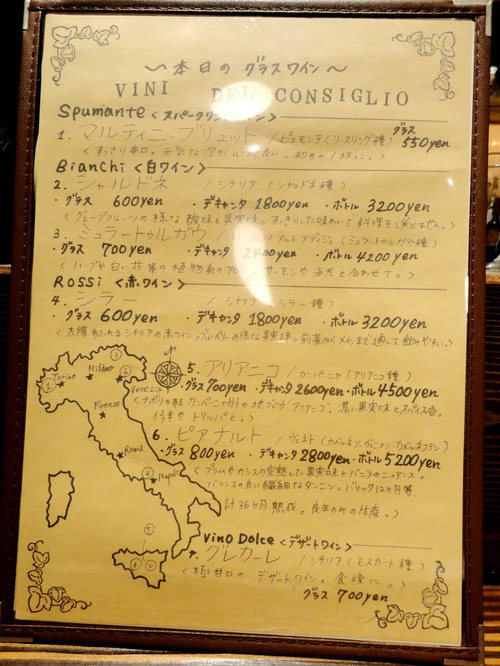 〜本日の グラスワイン〜
VINI DEL CONSIGLIO
Spumante <スパークリングワイン>
1. マルティニ・ブリュット / ピエモンテ (リースリング種) グラス 550yen
<すっきり辛口。元気な泡が
Bianchi <白ワイン>
2. シャルドネ / シチリア (シャルドネ種)
・グラス 600yen ・デキャンタ 1800yen ・ボトル 3200yen
<グレープフルーツの様な酸味と果実味。すっきりした味わいで料理を選びません。>
3. ミュラートゥルガウ / アルト アディジェ (ミュラートゥルガウ種)
・グラス 700yen ・デキャンタ 2400yen ・ボトル 4200yen
<ハーブや白い花等の植物系のアロマ。サーモンや海老と合わせて。>
Rossi <赤ワイン>
4. シラー / シチリア (シラー種)
・グラス 600yen ・デキャンタ 1800yen ・ボトル 3200yen
<太陽あふれるシチリアの赤ワイン。ブルーベリーの様な果実味。前菜からメインまで通して飲みやすい。>
5. アリアニコ / カンパーニャ (アリアニコ種)
・グラス 700yen ・デキャンタ 2600yen ・ボトル 4500yen
<ナポリのある カンパーニャ州の地ブドウ"アリアニコ"。濃い果実味とスパイス香。
仔羊や トリッパと。>
6. ピアナルト / ヴェネト (カベルネソーヴィニヨン・カベルネフラン)
・グラス 800yen ・デキャンタ 2800yen ・ボトル 5200yen
<プラムやカシスの完熟した果実味とバニラのニュアンス。
バランスの良い繊細なタンニン。バリック12ヶ月等
計36ヶ月熟成。良年のみの生産。>
Vino Dolce <デザートワイン>
7. グレカーレ / シチリア (モスカート種)
<極甘口の デザートワイン。食後に。>
グラス 700yen
N
① Torino
Milano
③
⑥
Venezia
Firenze
Roma
⑤
Napoli
⑦
④ ②